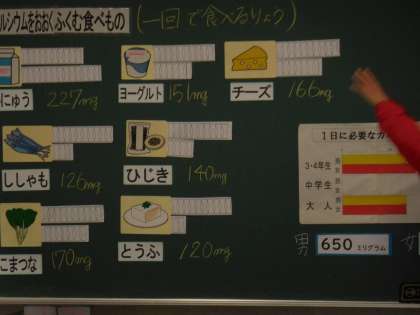 ルシウムをおおくふくむ食べもの (一回で食べるりょう)
にゅう 227mg ヨーグルト 151mg チーズ 166mg
ししゃも 126mg ひじき 140mg
こまつな 170mg とうふ 120mg
1日に必要なカ
3・4年生
中学生
大人
男 650 ミリグラム 女